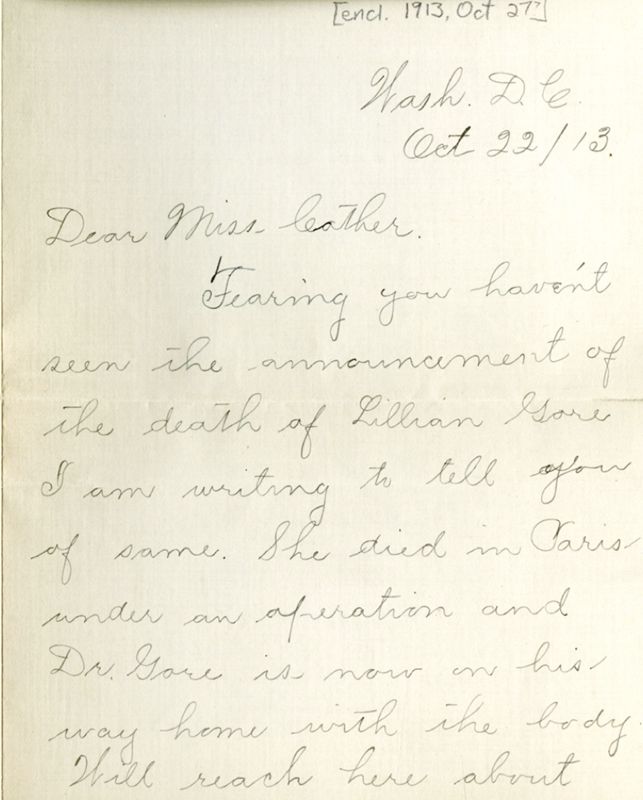 [encl. 1913, Oct 27?]
Wash. D. C.
Oct 22/13.
Dear Miss Cather.
Fearing you haven't
seen the announcement of
the death of Lillian Gore
I am writing to tell you
of same. She died in Paris
under an operation and
Dr. Gore is now on his
way home with the body.
Will reach here about